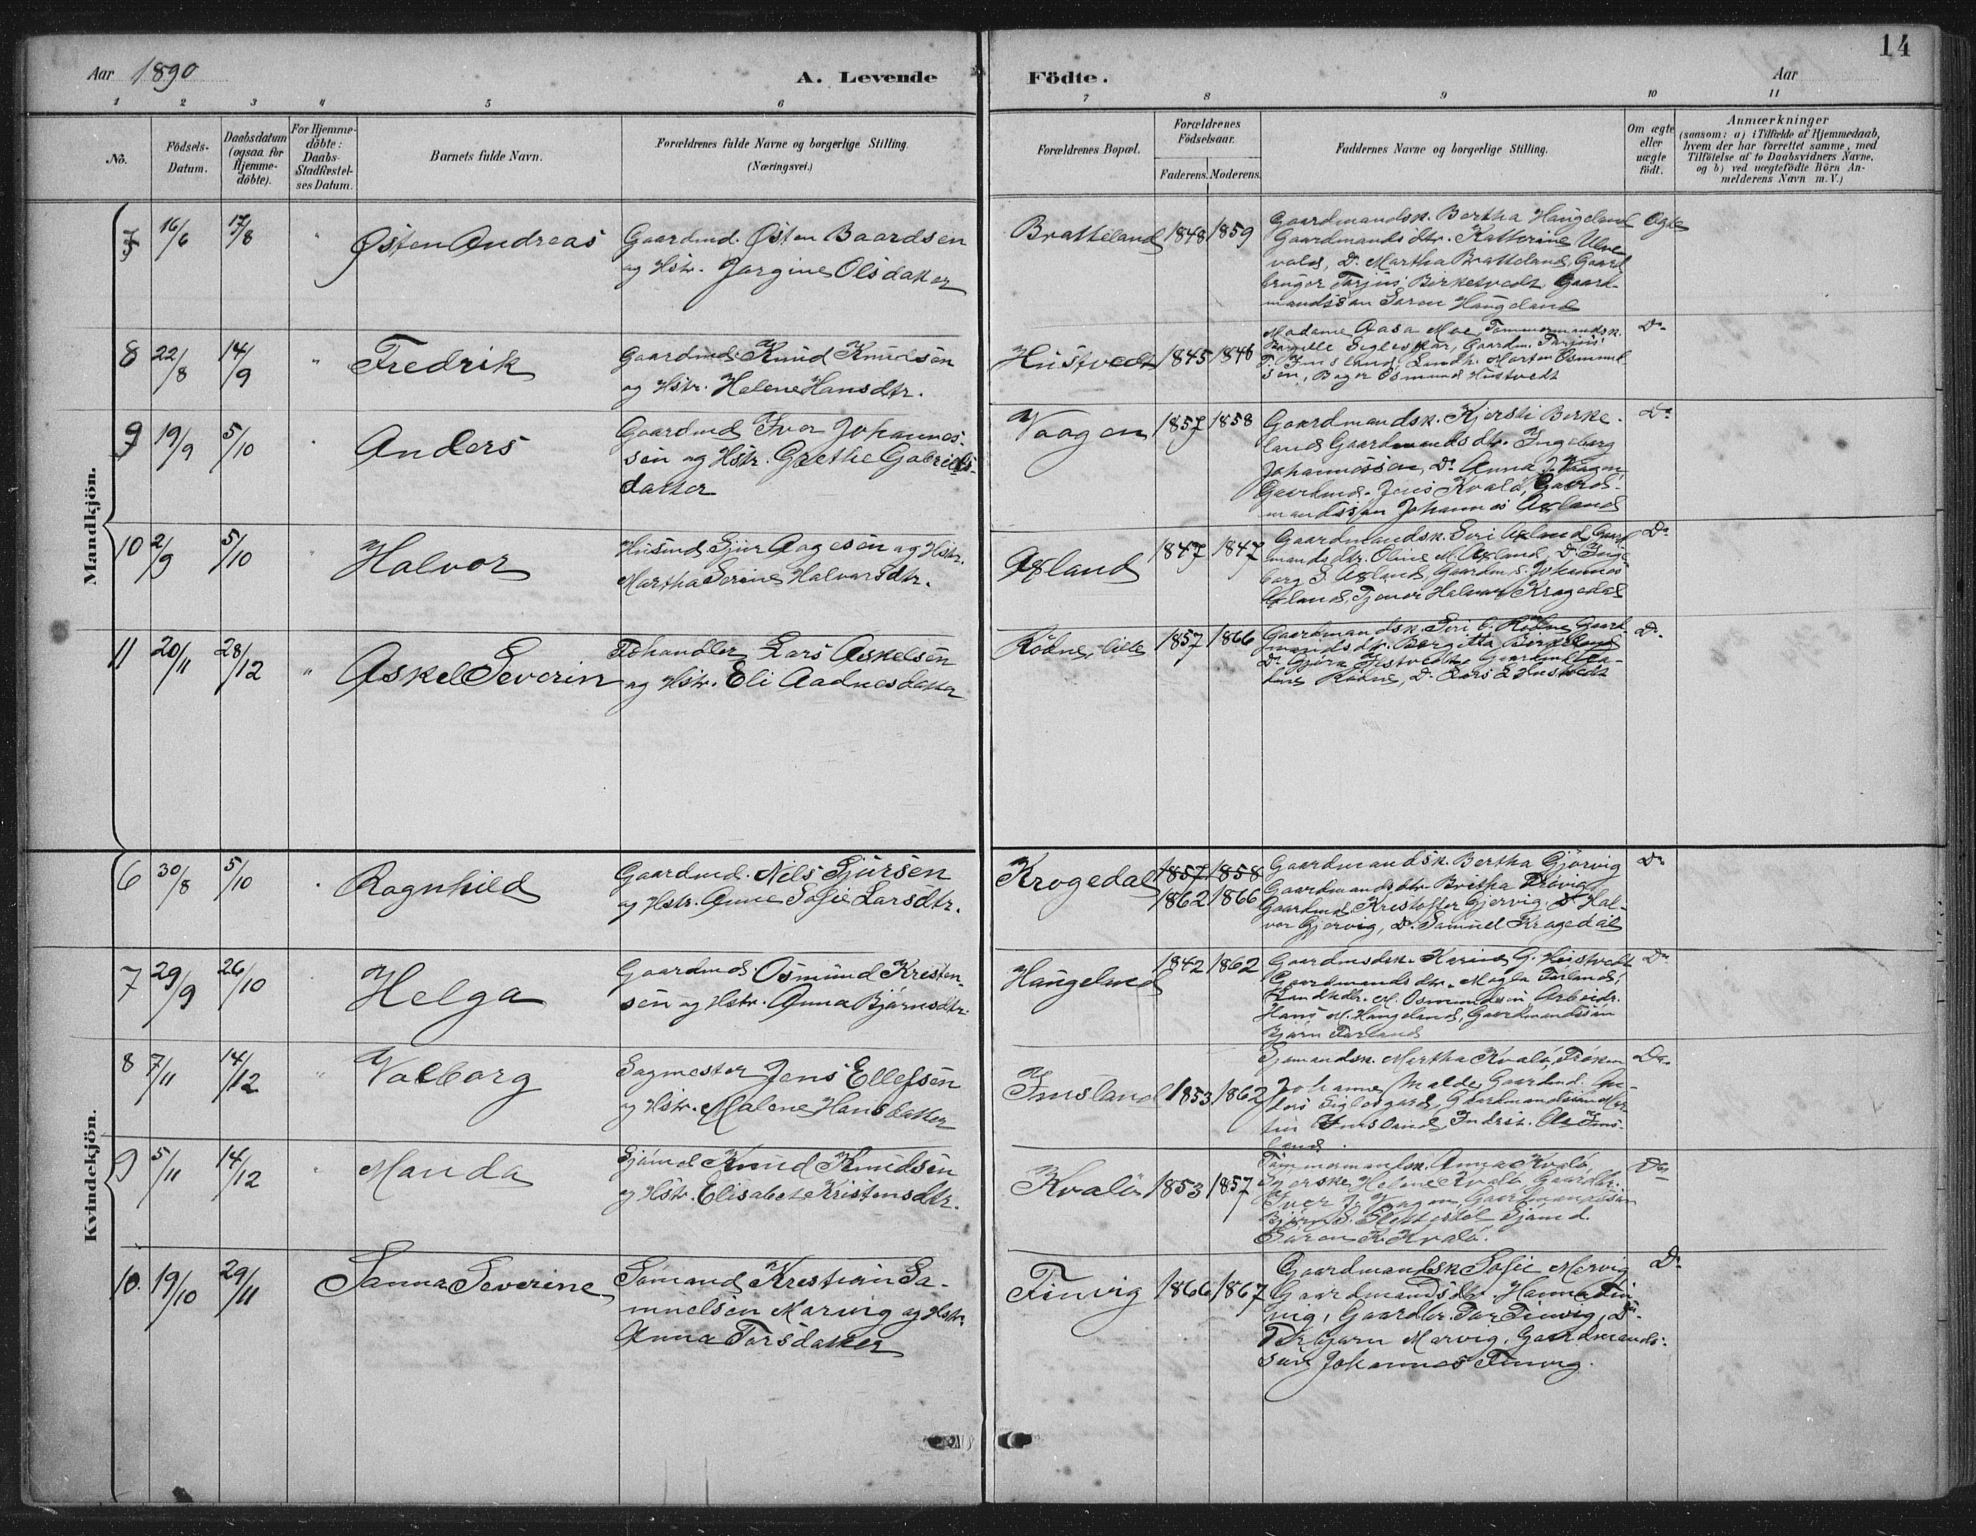 14
Aar 1890 A. Levende Födte. Aar
1 2 3 4 5 6 7 8 9 10 11
No.
Födsels-
Datum.
Daabsdatum
(ogsaa for
Hjemme-
döbte).
For Hjemme-
döbte:
Daabs-
Stadfæstel-
ses Datum.
Barnets fulde Navn.
Forældrenes fulde Navne og borgerlige Stilling.
(Næringsvei.)
Forældrenes Bopæl.
Forældrenes
Födselsaar.
Faderens. Moderens.
Faddernes Navne og borgerlige Stilling.
Om ægte
eller
uægte
födt.
Anmærkninger
(saasom: a) i Tilfælde af Hjemmedaab,
hvem der har forrettet samme, med
Tilföielse af to Daabsvidners Navne,
og b) ved uægtefödte Börn An-
melderens Navn m. V.)
Mandkjön.
7 16/6 17/8 " Østen Andreas
Gaardmd. Østen Baardsen
og Hstr. Jorgine Olsdatter
Bratteland 1848 1859
Gaardmandsk. Bertha Haugeland
Gaardmandsdtr. Katherine Ulve-
vold, Do Martha Bratteland, Gaard-
bruger Tarjus Birketvedt Gaard-
mandssøn Soren Haugeland
Ægte
8 22/8 14/9 " Fredrik
Gaardmd. Knud Knudsen
og Hstr. Helene Hansdtr.
Hustvedt 1845 1846
Madame Aasa Moe, Tømmermandsk.
Gaardm. Tarjus
Imsland, Landh. Morten Osmund-
sen, Bager Osmund Hustvedt
Do
9 19/9 5/10 " Anders
Gaardmd Iver Johannes-
sen og Hstr. Grethe Gabriels-
datter
Vaagen 1857 1858
Gaardmandsk. Kjersti Berke-
land Gaardmandsdtr. Ingeborg
Johannessen, Do Anna I. Vaagen,
Gaardmd. Jens Kvalø, Gaard-
mandssøn Johannes Axland
Do
10 2/9 5/10 " Halvor
Husmd Sjur Aagesen og Hstr.
Martha Serine Halvorsdtr.
Axland 1847 1847
Gaardmandsk. Siri Axland Gaard-
mandsdtr. Oline M. Axland, Do Inge-
borg S. Axland, Gaardm. S. Johannes
Axland, Tjener Halvor Krogedal
Do
11 20/11 28/12 " Askel Severin
Lars Askelsen
og Hstr. Eli Aadnesdatter
Rødne, lille 1857 1866
Gaardmandsk. Siri C. Rødne Gaard-
mandsdtr. Bergitta Birkeland
Do Gjöra Hustvedt, Gaardmd
Rødne, Do Lars E Hustvedt
Do
Kvindekjön.
6 30/8 5/10 " Ragnhild
Gaardmd. Nils Sjursen
og Hstr. Anne Sofie Larsdtr.
Krogedal 1857 1858
1862 1866
Gaardmandsk. Bertha Gjørvig
Gaardmandsdtr. Britha Frøvig
Gaardmd Kristoffer Gjervig, Do Hal-
vor Gjervig, Do. Samuel Krogedal
Do
7 29/9 26/10 " Helga
Gaardmd. Osmund Kristen-
sen og Hstr. Anna Bjørnsdtr.
Haugeland 1842 1862
Gaardmdsk. Karine G. Hustvedt
Gaardmandsdtr. Magla Førland,
Landhdlr. M. Osmundsen Arbeidr.
Hans M. Haugeland, Gaardmandssøn
Bjørn Førland
Do
8 7/11 14/12 " Valborg
Sagmester Jens Ellefsen
og Hstr. Malene Hansdatter
Imsland 1853 1862
Sjømandsk. Martha Kvalø, Frøken
Johanne Malde Gaardmd. An-
ders Gaardmandssøn Mar-
tin Imsland, Indrest. Ole Ims-
land.
Do
9 5/11 14/12 " Manda
Sjømd Knud Knudsen
og Hstr. Elisabet Kristensdtr.
Kvalø 1853 1857
Tømmermandsk. Anna Kvalø,
Syerske Helene Kvalø, Gaardbr.
Iver J. Vaagen Gaardmandssøn
Bjørn S. Sjømd.
Søren K. Kvalø.
Do
10. 19/10 29/11 Sanna Severine
Sømand Kristian Sa-
muelsen Marvig og Hstr.
Anna Torsdatter
Finvig 1866 1867
Gaardmandsk Sofie Mervig
Gaardmandsdtr. Hanna Fin-
vig, Gaardbr. Tor Finvig, Do
Torbjørn Marvig, Gaardmands-
søn Johannes Finvig.
Do